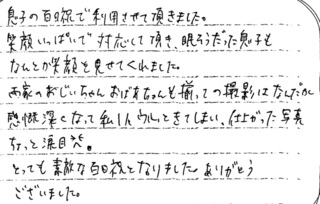 息子の百日祝で利用させて頂きました。
笑顔いっぱいで対応して頂き、眠そうだった息子も
なんとか笑顔を見せてくれました。
両家のおじいちゃんおばあちゃんも揃っての撮影はなんだか
感慨深くなって私1人ウルッときてしまい、仕上がった写真
ちょっと涙目笑。
とっても素敵な百日祝となりました。ありがとう
ございました。